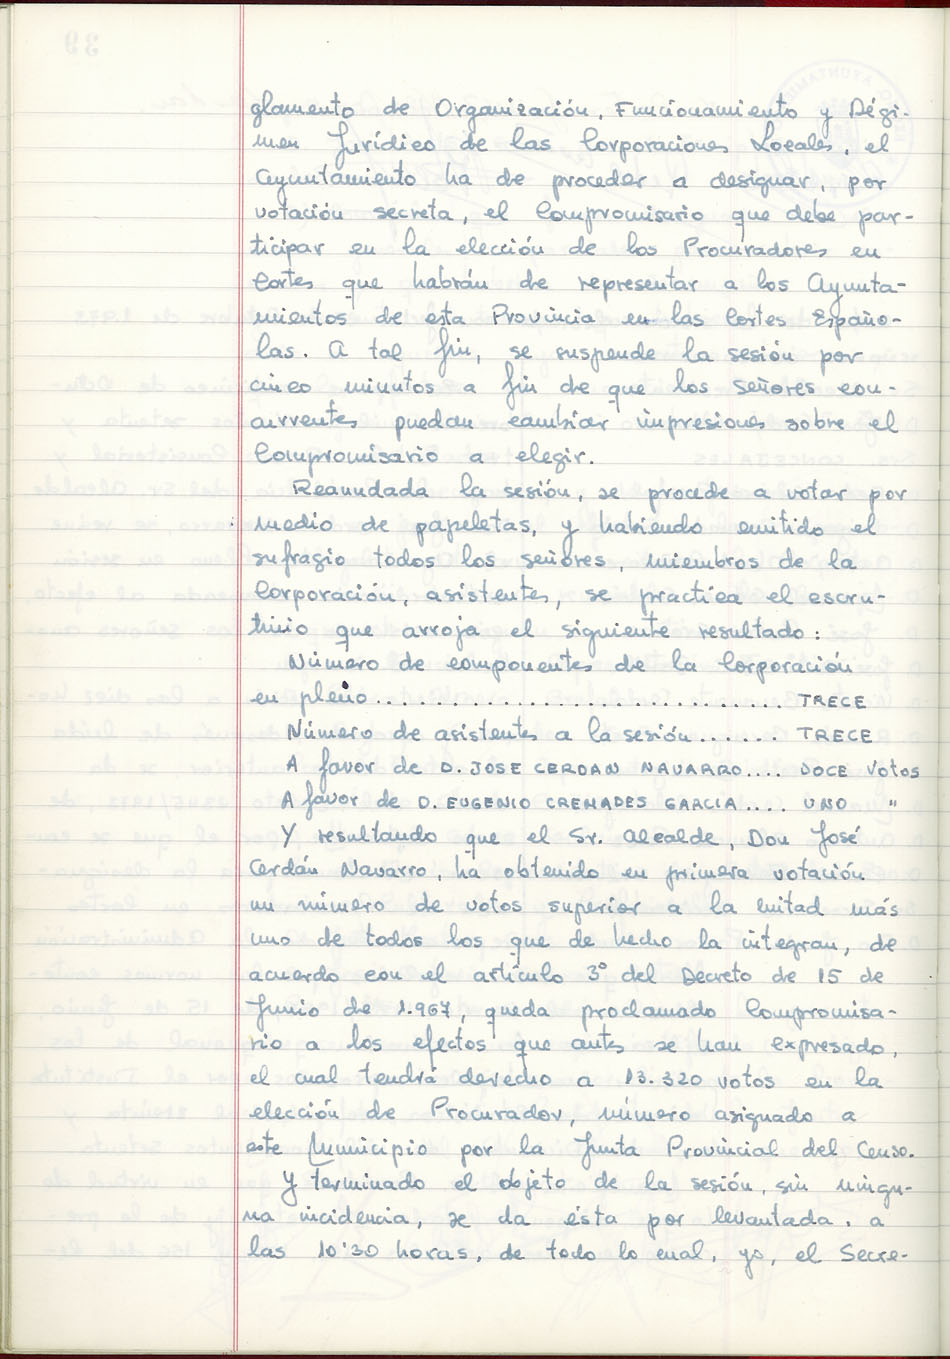 glamento de Organización, Funcionamiento y Régi-
men Jurídico de las Corporaciones Locales, el
Ayuntamiento ha de proceder a designar, por
votación secreta, el Compromisario que debe par-
ticipar en la elección de los Procuradores en
Cortes que habrán de representar a los Ayunta-
mientos de esta Provincia en las Cortes Españo-
las. A tal fin, se suspende la sesión por
cinco minutos a fin de que los señores con-
currentes puedan cambiar impresiones sobre el
Compromisario a elegir.
Reanudada la sesión, se procede a votar por
medio de papeletas, y habiendo emitido el
sufragio todos los señores, miembros de la
Corporación, asistentes, se practica el escru-
tinio que arroja el siguiente resultado:
Número de componentes de la Corporación
en pleno............................ TRECE
Número de asistentes a la sesión...... TRECE
A favor de D. JOSE CERDAN NAVARRO.... DOCE Votos
A favor de D. EUGENIO CREMADES GARCIA.... UNO "
Y resultando que el Sr. Alcalde, Don José
Cerdán Navarro, ha obtenido en primera votación
un número de votos superior a la mitad más
uno de todos los que de hecho la integran, de
acuerdo con el artículo 3º del Decreto de 15 de
Junio de 1.967, queda proclamado Compromisa-
rio a los efectos que antes se han expresado,
el cual tendrá derecho a 13.320 votos en la
elección de Procurador, número asignado a
este Municipio por la Junta Provincial del Censo.
Y terminado el objeto de la sesión, sin ningu-
na incidencia, se da ésta por levantada, a
las 10'30 horas, de todo lo cual, yo, el Secre-